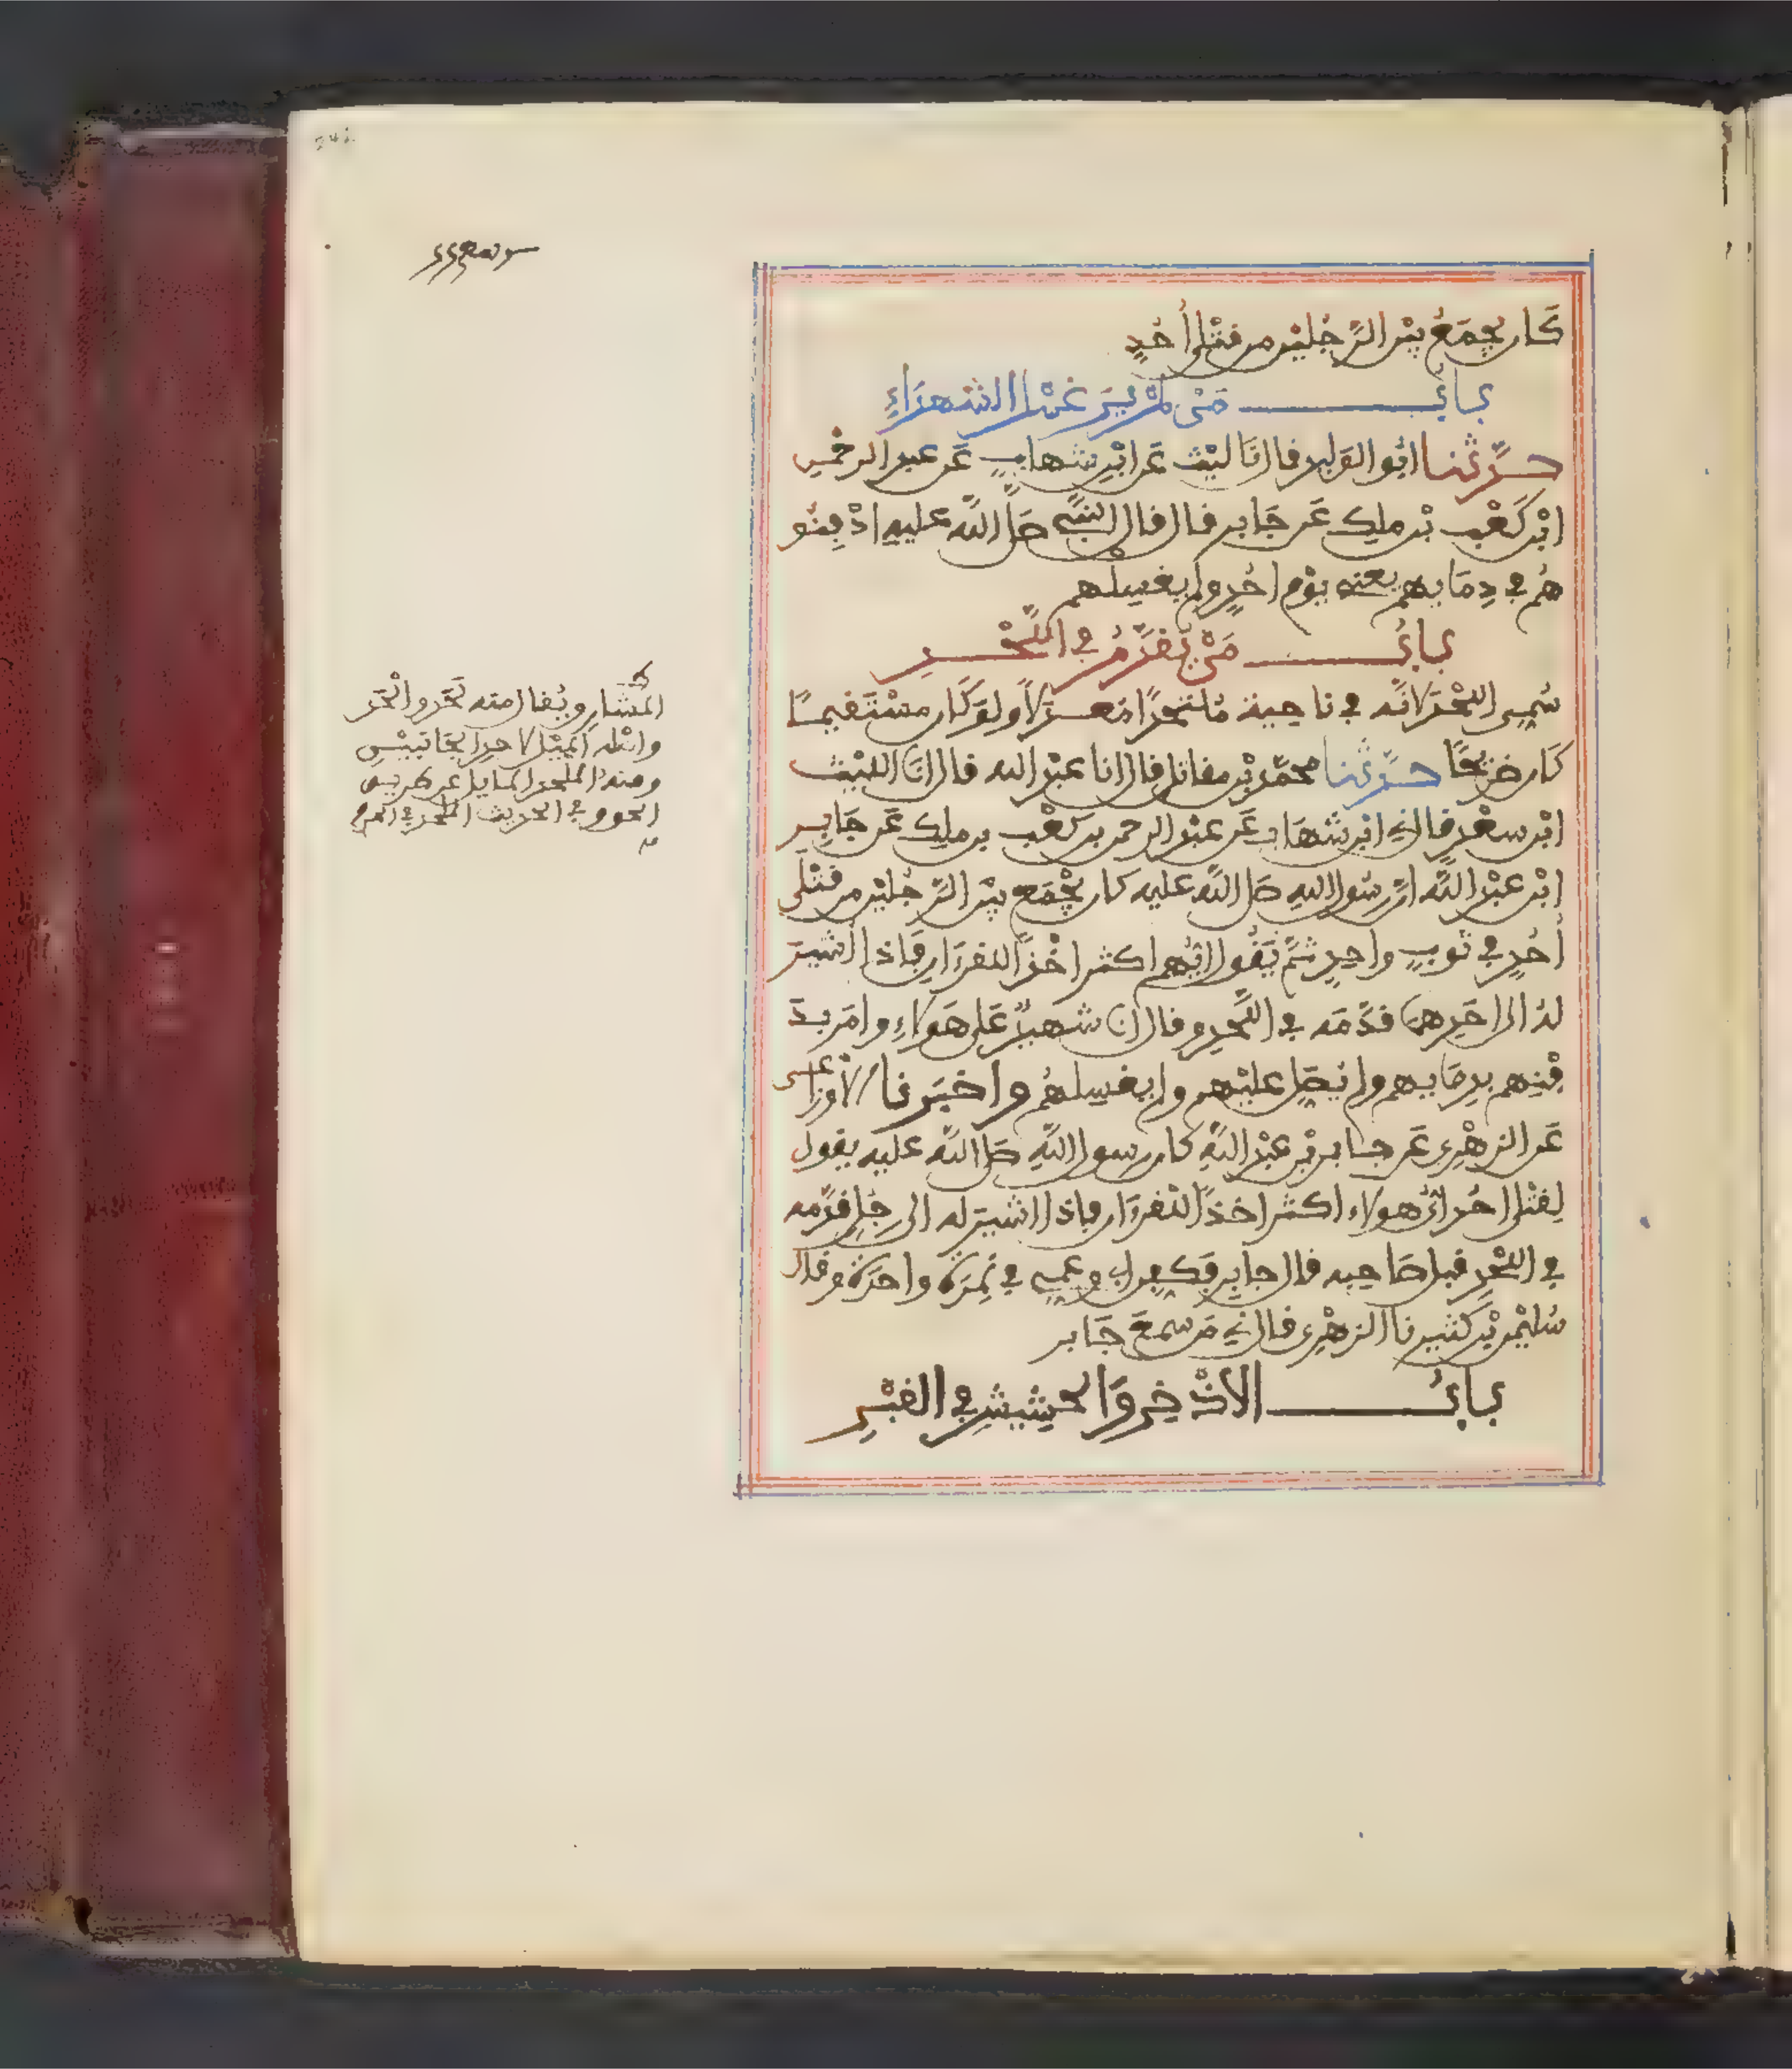 كان يجمع بين الرجلين من قتلى أحد
باب من لم ير غسل الشهداء
حدثنا ابو الوليد قال نا ليث عن ابن شهاب عن عبد الرحمن
ابن كعب بن ملك عن جابر قال قال النبي صلى الله عليه ادفنو
هم في دمايهم يعني يوم احد ولم يغسلهم
باب من يقدم في اللحد
سمي اللحد لانه في ناحية ملتحدا معدلا ولو كان مستقيما
كان ضريحا حدثنا محمد بن مقاتل قال انا عبد الله قال انا الليث
ابن سعد قال ني ابن شهاب عن عبد الرحمن بن كعب بن ملك عن جابر
ابن عبد الله ان رسول الله صلى الله عليه كان يجمع بين الرجلين من قتلى
أحد في ثوب واحد ثم يقول ايهم اكثر اخذا للقرءان فاذا اشير
له الى احدهما قدمه في اللحد وقال انا شهيد على هولاء وامر بد
فنهم بدمايهم ولم يصل عليهم ولم يغسلهم واخبرنا الاوزاعى
عن الزهري عن جابر بن عبد الله كان رسول الله صلى الله عليه يقول
لقتلى احد اي هولاء اكثر اخذا للقرءان فاذا اشير له الى رجل قدمه
في اللحد قبل صاحبه قال جابر فكفن ابي وعمي في نمرة واحدة وقال
سليمن بن كثير نا الزهري قال ني من سمع جابر
باب الاذخر والحشيش في القبر
المشار ويقال منه لحد والحد
واصله الميل لاحد الجانبين
ومنه الملحد المايل عن طريق
الحق وفي الحديث الملحد في الحرم